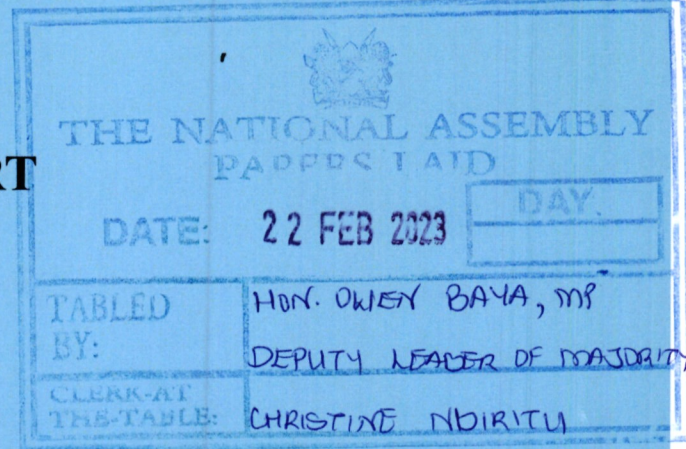 THE NATIONAL ASSEMBLY
PAPERS LAID
RT
DATE: 22 FEB 2023 DAY.
TABLED BY: HON. OWEN BAYA, MP
DEPUTY LEADER OF MAJORITY
CLERK-AT THE-TABLE: CHRISTINE NDIRITU